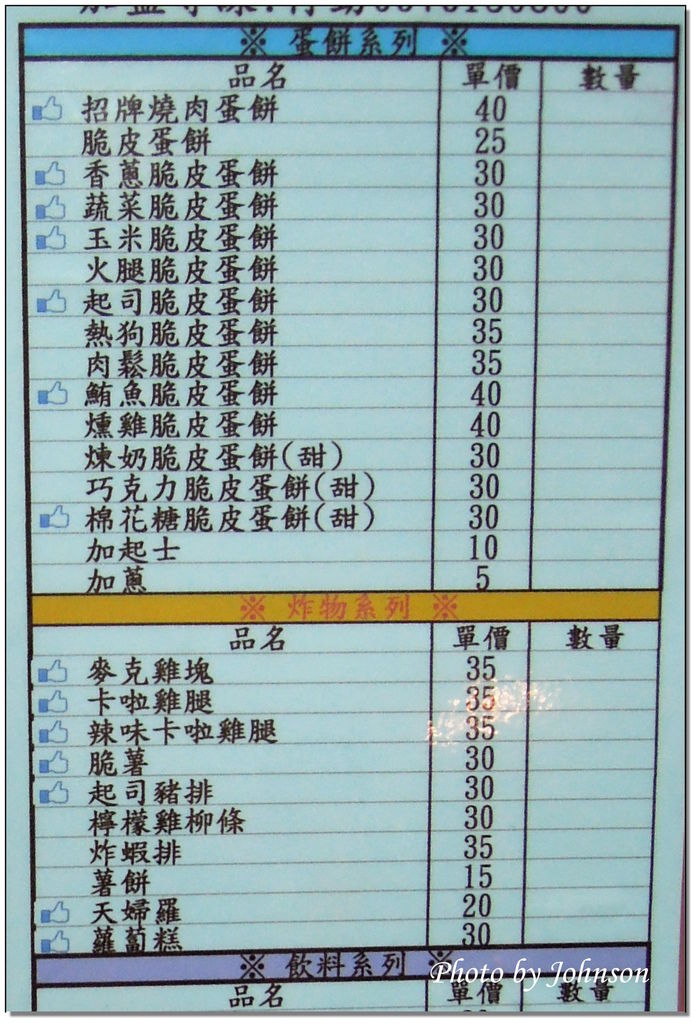 ※ 蛋餅系列 ※
品名 單價 數量
招牌燒肉蛋餅 40
脆皮蛋餅 25
香蔥脆皮蛋餅 30
蔬菜脆皮蛋餅 30
玉米脆皮蛋餅 30
火腿脆皮蛋餅 30
起司脆皮蛋餅 30
熱狗脆皮蛋餅 35
肉鬆脆皮蛋餅 35
鮪魚脆皮蛋餅 40
燻雞脆皮蛋餅 40
煉奶脆皮蛋餅(甜) 30
巧克力脆皮蛋餅(甜) 30
棉花糖脆皮蛋餅(甜) 30
加起士 10
加蔥 5
※ 炸物系列 ※
品名 單價 數量
麥克雞塊 35
卡啦雞腿 35
辣味卡啦雞腿 35
脆薯 30
起司豬排 30
檸檬雞柳條 30
炸蝦排 35
薯餅 15
天婦羅 20
蘿蔔糕 30
※ 飲料系列 ※
品名 單價 數量
Photo by Johnson